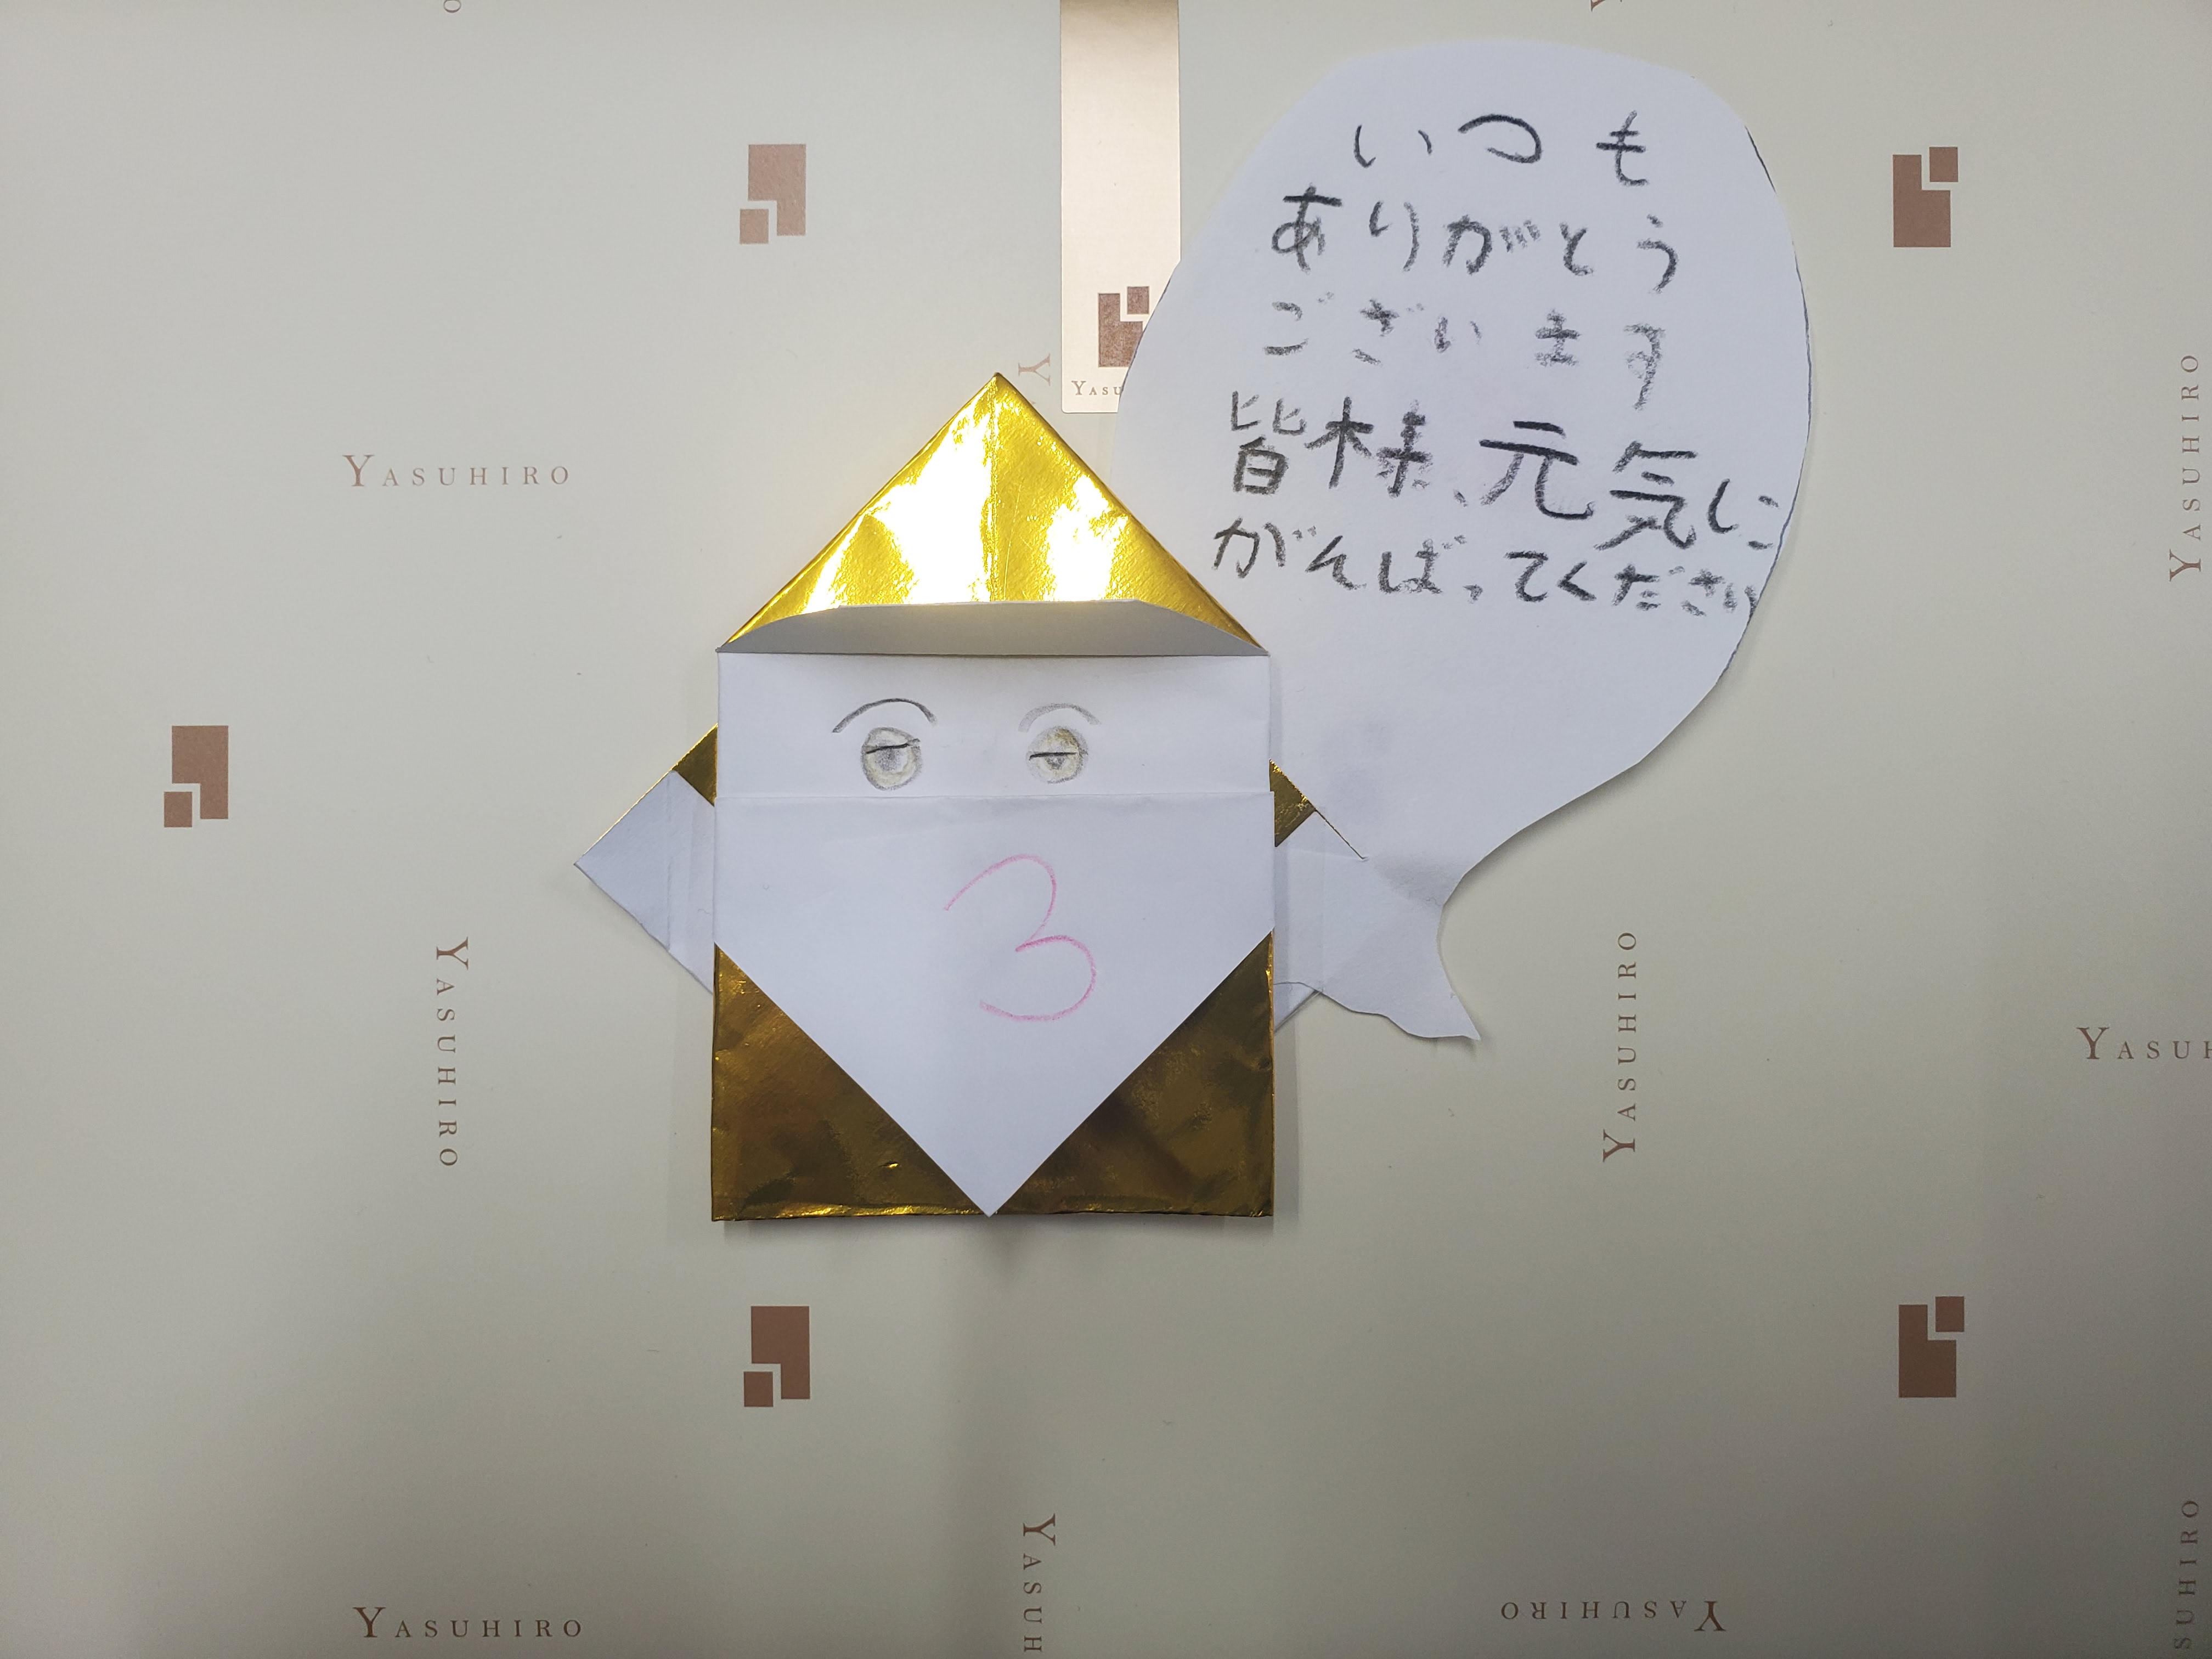 いつも
ありがとう
ございます
皆様、元気に
がんばってください
3
YASUHIRO
YASUHIRO
YASUHIRO
YASUHIRO
YASUHIRO
YASUHIRO